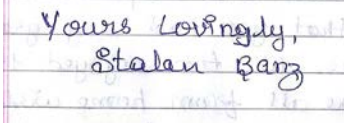 Yours Lovingly,
Stalan Banz